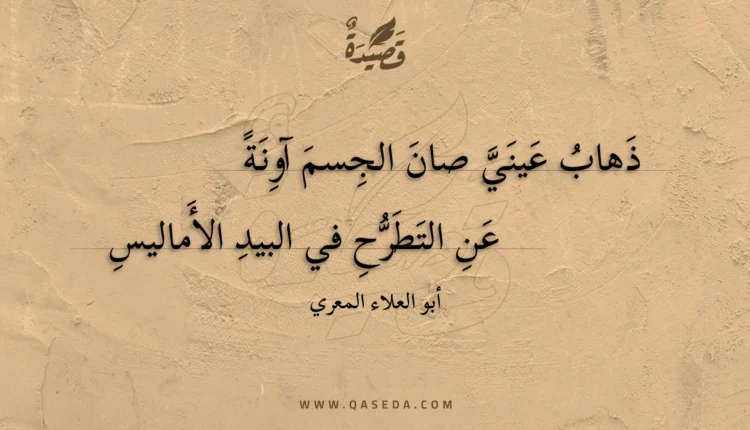 قَصِيدَةٌ
ذَهابُ عَينَيَّ صانَ الجِسمَ آوِنَةً
عَنِ التَطَرُّحِ في البيدِ الأَماليسِ
أبو العلاء المعري
WWW.QASEDA.COM